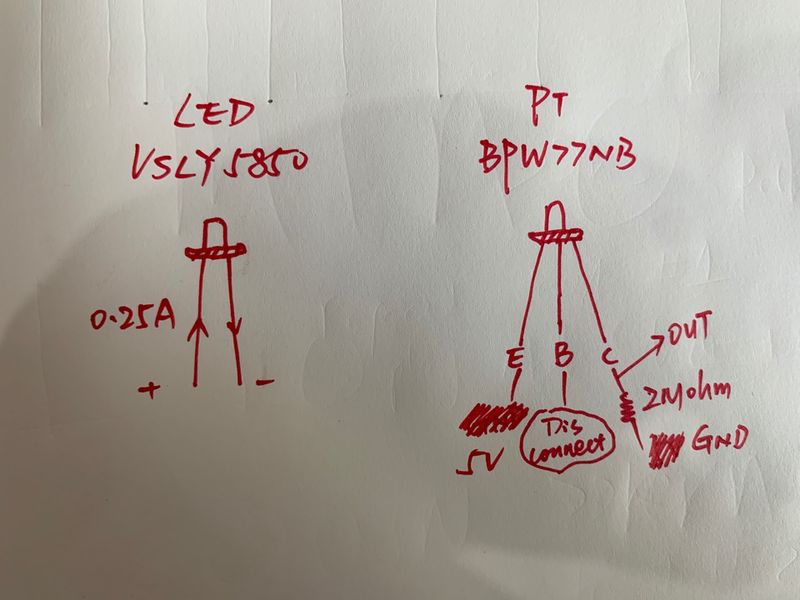 LED
VSLY5850
0.25A
+ -
PT
BPW77NB
E B C
OUT
2Mohm
GND
5V
Dis
connect